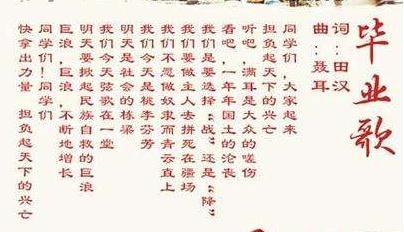 毕业歌
词:田汉
曲:聂耳
同学们,大家起来
担负起天下的兴亡
听吧,满耳是大众的嗟伤
看吧,一年年国土的沦丧
我们是要选择“战”还是“降”
我们要做主人去拼死在疆场
我们不愿做奴隶而青云直上
我们今天是桃李芬芳
明天是社会的栋梁
我们今天弦歌在一堂
明天要掀起民族自救的巨浪
巨浪,巨浪,不断地增长
同学们!同学们
快拿出力量 担负起天下的兴亡